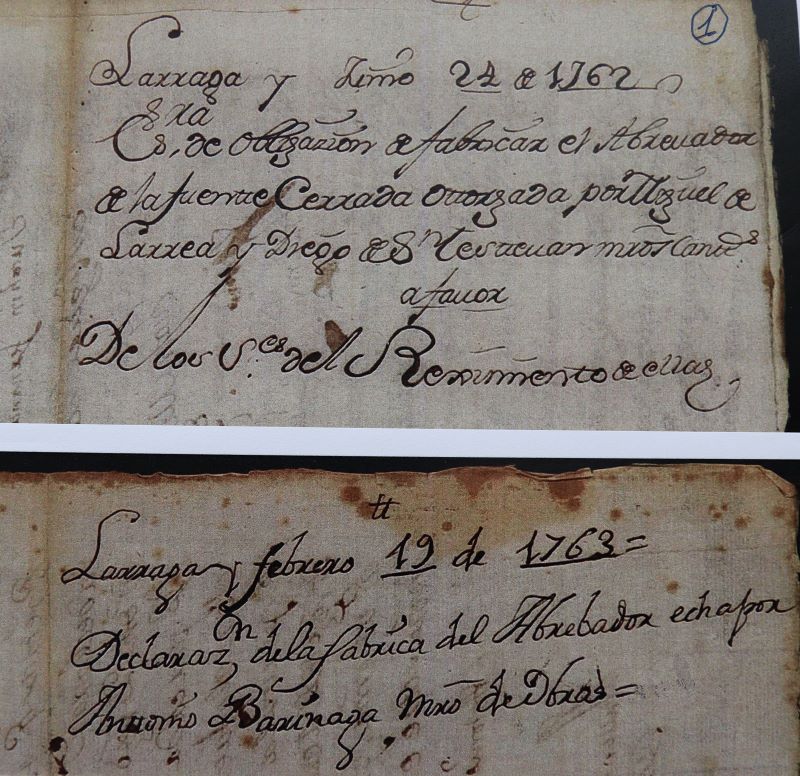 1
Larraga y Junio 24 de 1762
Es.ra de obligazion de fabricar el Abreuador
de la fuente Cerrada otorgada por Miguel de
Larrea y Diego de Sn Tesacuan mros Cantes
a fauor
De los Ses del Reximiento de ellas
tt
Larraga y febrero 19 de 1763=
Declarazn de la fabrica del Abrebador echa por
Antonio Barinaga mro de Obras=